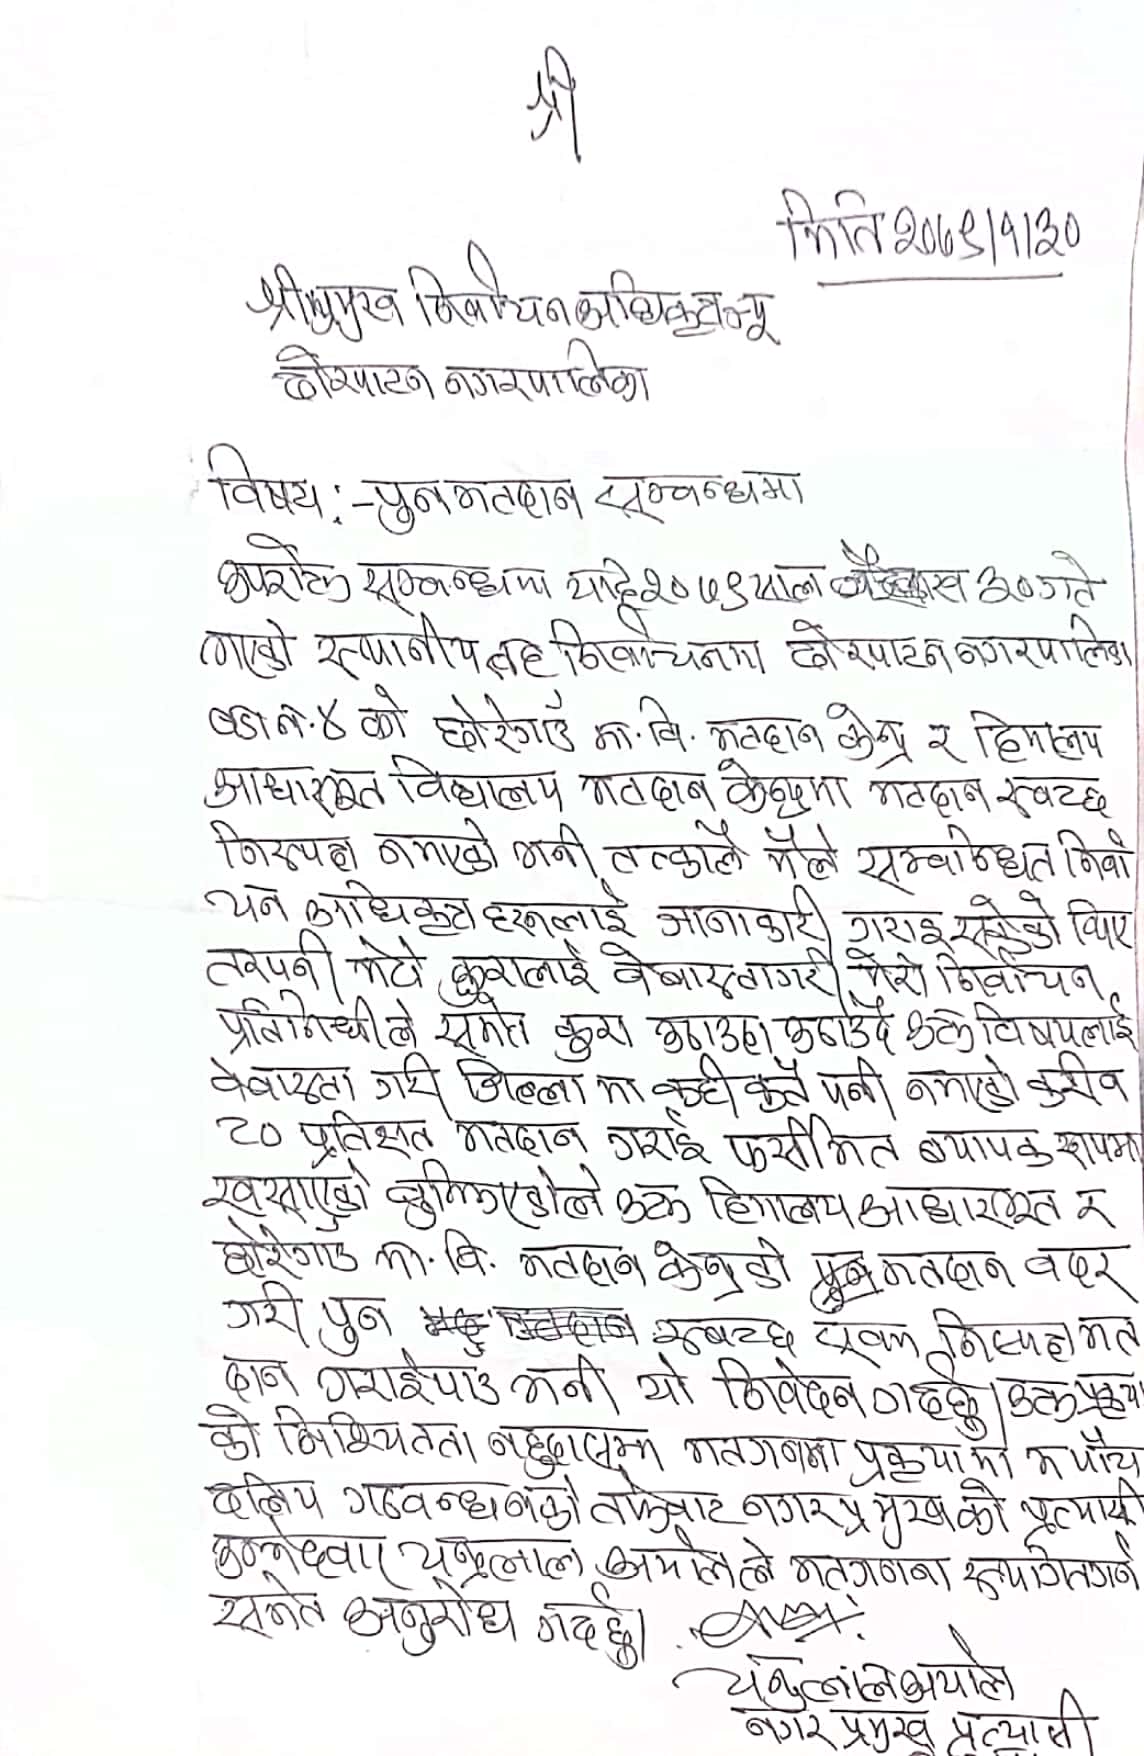 श्री
मिति २०७९/१/३०
श्री प्रमुख निर्वाचन अधिकृतज्यू
ढोरपाटन नगरपालिका
विषय :- पुन मतदान सम्वन्धमा
उपरोक्त सम्वन्धमा यहि २०७९ साल वैशाख ३० गते
भएको स्थानीय तह निर्वाचनमा ढोरपाटन नगरपालिका
वडा नं. ४ को छोरेगाउँ मा. वि. मतदान केन्द्र र हिमालय
आधारभूत विद्यालय मतदान केन्द्रमा मतदान स्वच्छ
निस्पक्ष नभएको भनी तत्कालै मैले सम्वान्धित निर्वा
चन अधिकृत हरुलाई जानाकारी गराइ सकेको थिए
तरपनी मेरो कुरालाई वेवास्तागरी मेरो निर्वाचन
प्रतिनिधीले समेत कुरा उठाउदा उठाउदै उक्त विषयलाई
वेवास्ता गरी जिल्ला मा कही कतै पनी नभएको करीव
८० प्रतिशत मतदान गराई व्यापक रुपमा
खसाएको वुझिएकोले उक्त हिमालय आधारभूत र
छोरेगाउ मा. वि. मतदान केन्द्रको मतदान वदर
गरी पुन स्वच्छ एवम निस्पक्ष मत
दान गराईपाउ भनी यो निवेदन गर्दछु। उक्त प्रकृया
को निश्चितता नहुदासम्म मतगनना प्रकृयामा म पाँच
दलिय गठवन्धनको तर्फवाट नगर प्रमुखको प्रत्यासी
उम्मेदवार चन्द्रलाल अर्याले मतगनना स्थगितगर्न
समेत अनुरोध गर्दछु।
चन्द्रलाल अर्याल
नगर प्रमुख प्रत्यासी